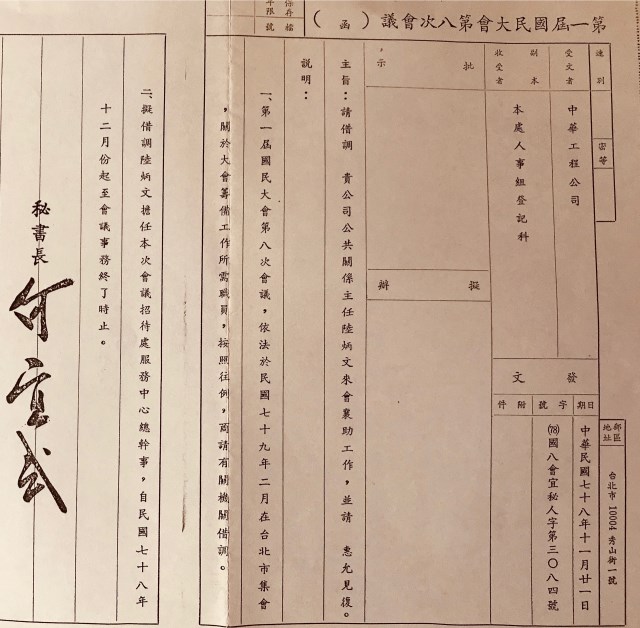 保存年限
檔號
第一屆國民大會第八次會議（函）
速別
密等
受文者
中華工程公司
副本收受者
本處人事組登記科
批示
擬辦
發文
日期
中華民國七十八年十一月廿一日
字號
(78)國八會宜秘人字第三〇八四號
附件
郵區地址
台北市 10004 秀山街一號
主旨：請借調　貴公司公共關係主任陸炳文來會襄助工作，並請　惠允見復。
說明：
一、第一屆國民大會第八次會議，依法於民國七十九年二月在台北市集會
，關於大會籌備工作所需職員，按照往例，商請有關機關借調。
二、擬借調陸炳文擔任本次會議招待處服務中心總幹事，自民國七十八年
十二月份起至會議事務終了時止。
秘書長 何宜武